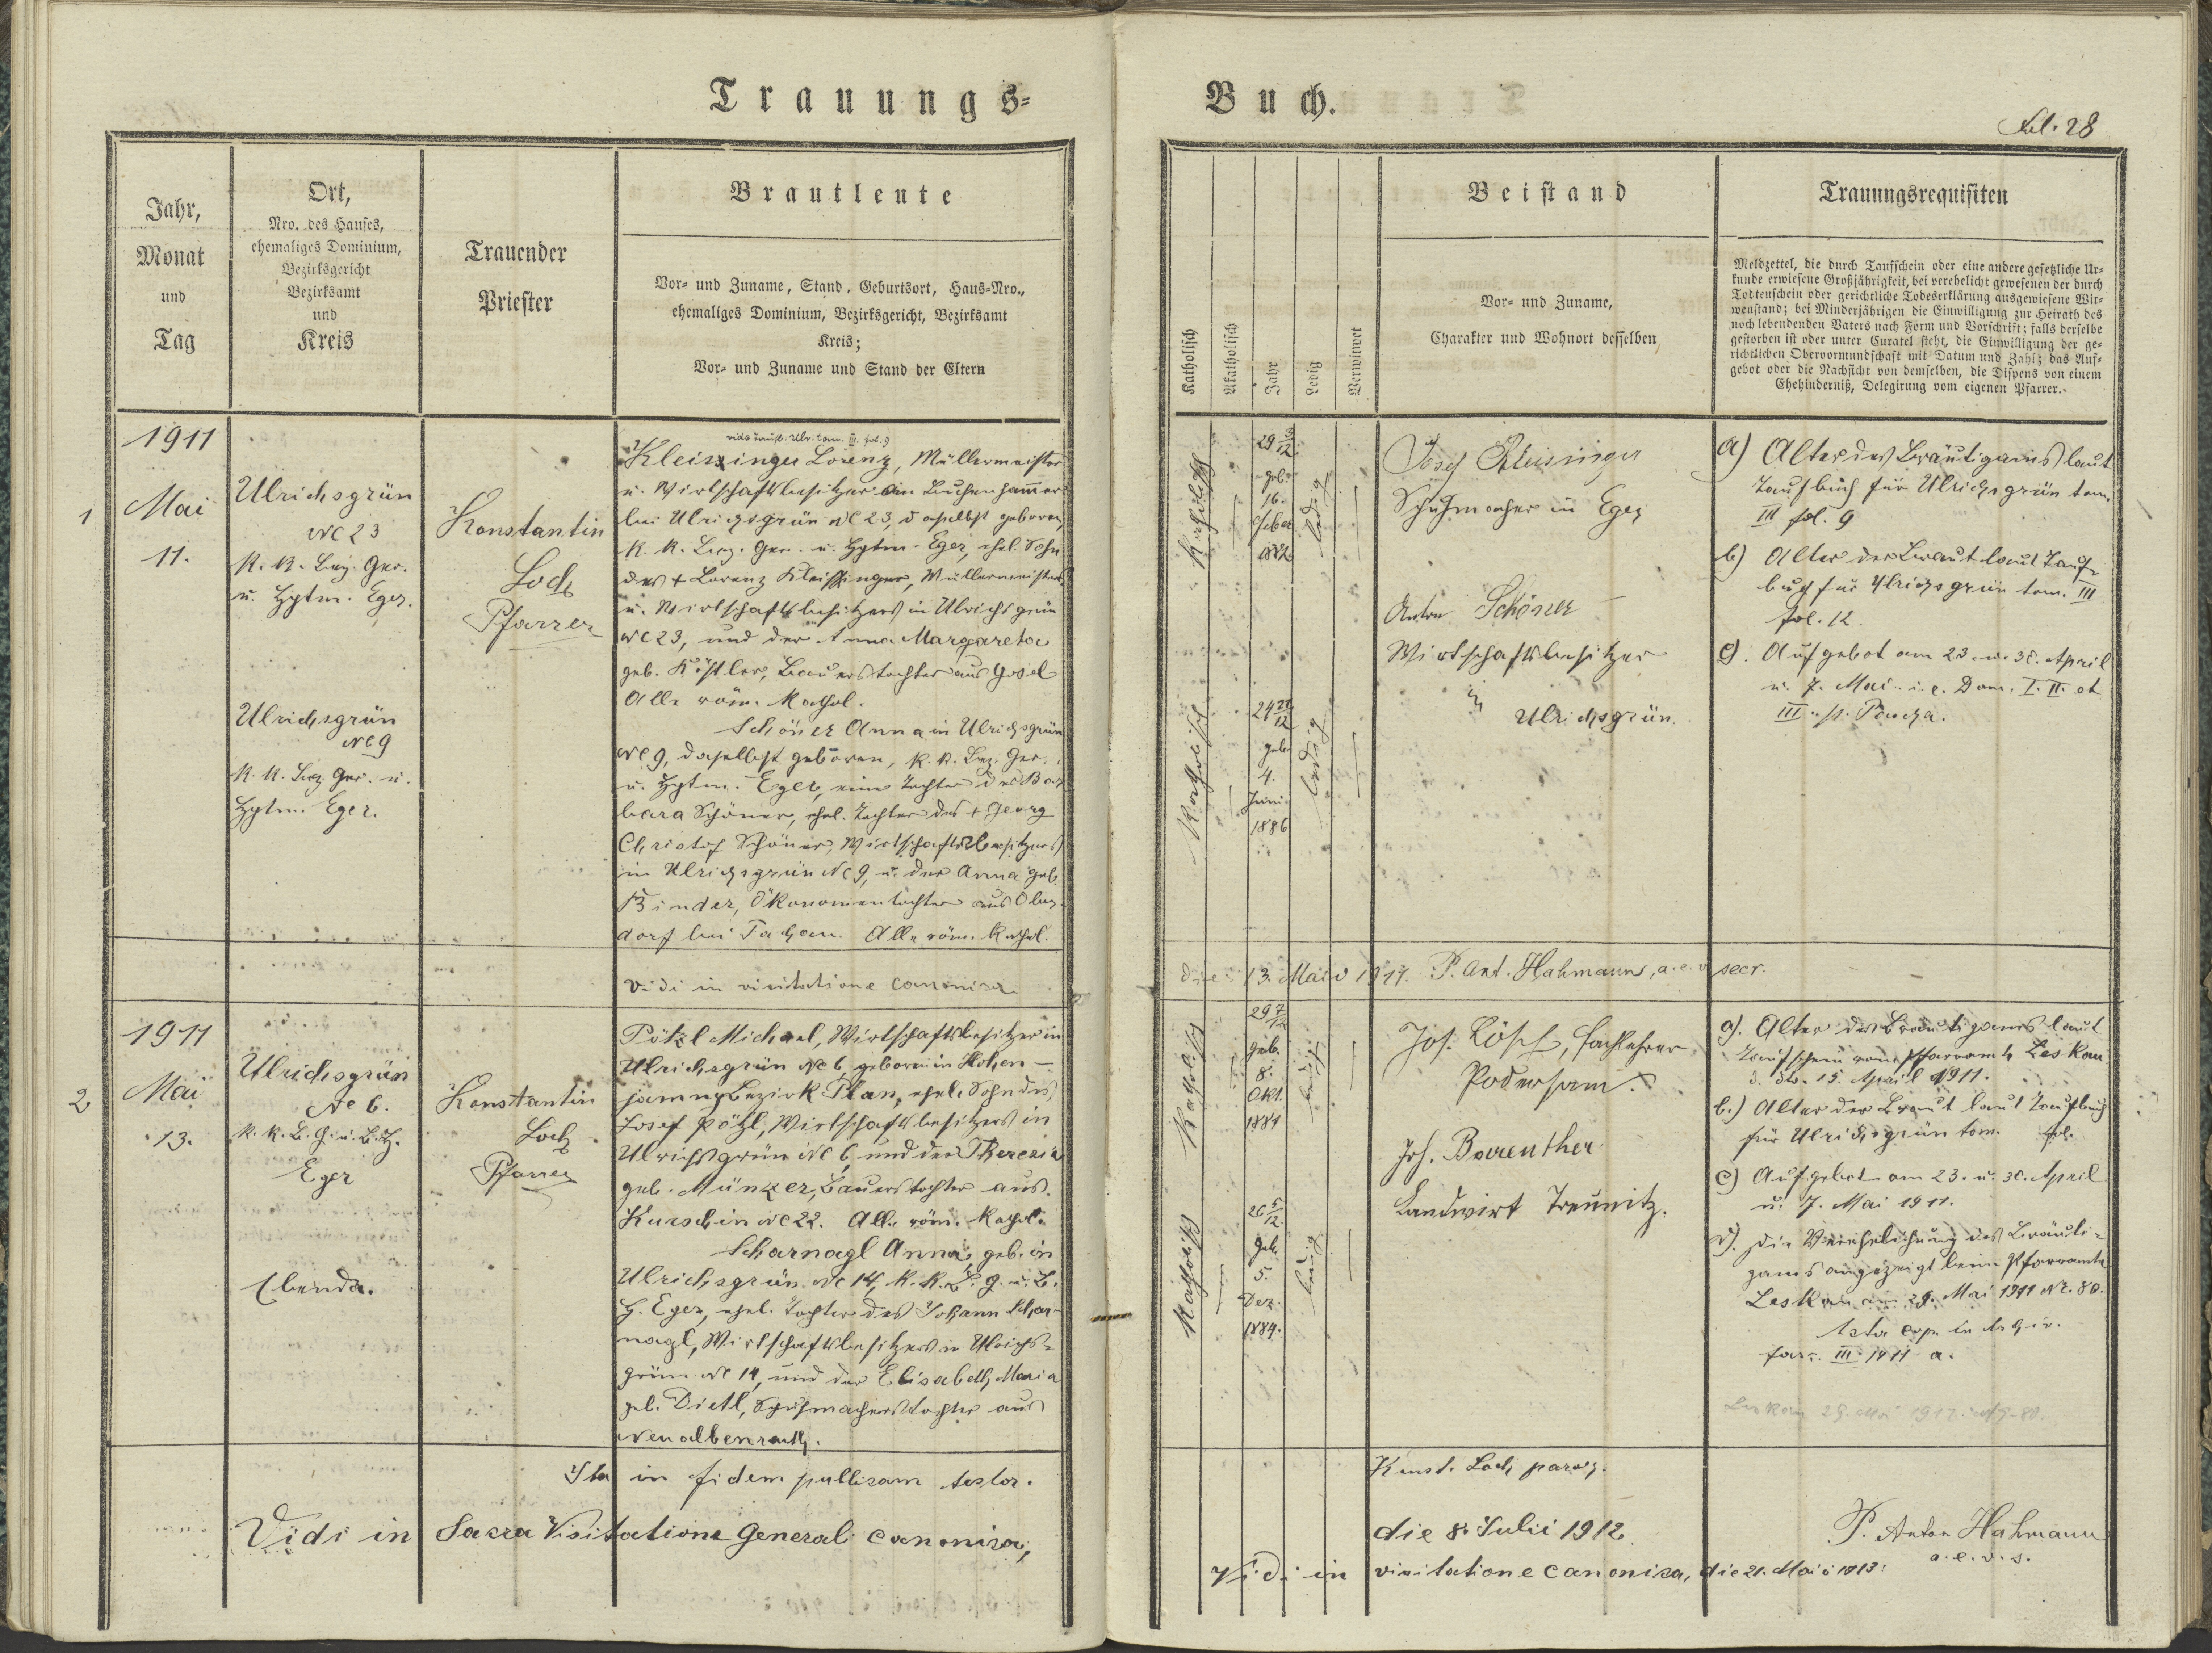 Trauungs=
Buch.
Fol. 28
Jahr,
Monat
und
Tag
Ort,
Nro. des Hauses,
ehemaliges Dominium,
Bezirksgericht
Bezirksamt
und
Kreis
Trauender
Priester
Brautleute
Vor= und Zuname, Stand, Geburtsort, Haus=Nro.,
ehemaliges Dominium, Bezirksgericht, Bezirksamt
Kreis;
Vor= und Zuname und Stand der Eltern
Katholisch
Akatholisch
Jahr
Ledig
Verwitwet
Beistand
Vor= und Zuname,
Charakter und Wohnort desselben
Trauungsrequisiten
Meldzettel, die durch Taufschein oder eine andere gesetzliche Ur=
kunde erwiesene Großjährigkeit, bei verehelicht gewesenen der durch
Todtenschein oder gerichtliche Todeserklärung ausgewiesene Wit=
wenstand; bei Minderjährigen die Einwilligung zur Heirath des
noch lebendenden Vaters nach Form und Vorschrift; falls derselbe
gestorben ist oder unter Curatel steht, die Einwilligung der ge=
richtlichen Obervormundschaft mit Datum und Zahl; das Auf=
gebot oder die Nachsicht von demselben, die Dispens von einem
Ehehinderniß, Delegirung vom eigenen Pfarrer.
1
1911
Mai
11.
Ulrichsgrün
NC 23
K. K. Bez. Ger.
u. Hptm. Eger.
Ulrichsgrün
NC 9
K. K. Bez. Ger. u.
Hptm. Eger.
Konstantin
Loch
Pfarrer
vide Taufb. Ulr. tom. III. fol. 9
Kleissinger Lorenz, Müllermeister
u. Wirtschaftsbesitzer am Buchenhammer
bei Ulrichsgrün NC 23, daselbst geboren,
K. K. Bez. Ger. u. Hptm. Eger, ehel. Sohn
des + Lorenz Kleissinger, Müllermeisters
u. Wirtschaftsbesitzers in Ulrichsgrün
NC 23, und der Anna Margareta
geb. Köstler, Bauerstochter aus Gosel
Alle röm. Kathol.
Schöner Anna in Ulrichsgrün
NC 9, daselbst geboren, K. K. Bez. Ger.
u. Hptm. Eger, eine Tochter der Bar
bara Schöner, ehel. Tochter des + Georg
Christof Schöner, Wirtschaftsbesitzers
in Ulrichsgrün NC 9, u. der Anna geb.
Binder, Ökonomentochter aus Ober
dorf bei Tachau. Alle röm. Kathol.
Katholisch
29 3/12
geb.
16.
Feber
1882
ledig
Katholisch
24 11/12
geb.
4.
Juni
1886
ledig
Josef Kleissinger
Schuhmacher in Eger
Anton Schöner
Wirtschaftsbesitzer
in
Ulrichsgrün.
a) Alter des Bräutigams laut
Taufbuch für Ulrichsgrün tom.
III fol. 9
b) Alter der Braut laut Tauf=
buch für Ulrichsgrün tom. III
fol. 12.
c). Aufgebot am 23. u. 30. April
u. 7. Mai i. e. Dom. I. II. et
III. p. Pascha.
Vidi in visitatione canonica
die 13. Maio 1911. P. Ant. Hahmann, a. e. v. secr.
2
1911
Mai
13.
Ulrichsgrün
NC 6.
K. K. B. G. u. B. H.
Eger
Ebenda.
Konstantin
Loch
Pfarrer
Pötzl Michael, Wirtschaftsbesitzer in
Ulrichsgrün NC 6, geboren in Hohen-
jamny Bezirk Plan, ehel. Sohn des
Josef Pötzl, Wirtschaftsbesitzers in
Ulrichsgrün NC 6 und der Theresia
geb. Münzer, Bauerstochter aus
Kurschin NC 22. Alle röm. Kathol.
Scharnagl Anna, geb. in
Ulrichsgrün NC 14, K. K. B. G. u. B.
H. Eger, ehel. Tochter des Johann Schar-
nagl, Wirtschaftsbesitzers in Ulrichs-
grün NC 14, und der Elisabeth Maria
geb. Dietl, Schuhmacherstochter aus
Neualbenreuth.
Katholisch
29 7/12
geb.
8.
Okt.
1881
ledig
Katholisch
26 5/12
geb.
5.
Dez.
1884.
ledig
Jos. Lösch, Fachlehrer
Podersam.
Joh. Bareuther
Landwirt Treunitz.
a). Alter des Bräutigams laut
Taufschein vom Pfarramte Leskau
d. dto. 15. April 1911.
b.) Alter der Braut laut Taufbuch
für Ulrichsgrün tom. fol.
c) Aufgebot am 23. u. 30. April
u. 7. Mai 1911.
d). Die Verehelichung des Bräuti-
gams angezeigt beim Pfarramte
Leskau am 29. Mai 1911 Nr. 80.
in Archiv.
fasc. III. 1911 a.
Leskau 29. Mai 1911. Nr. 80.
Ita in fidem publicam testor.
Konst. Loch, paroch.
Vidi in Sacra Visitatione Generali canonica,
die 8. Julii 1912
P. Anton Hahmann
a. e. v. s.
Vidi in visitatione canonica, die 21. Maii 1913.